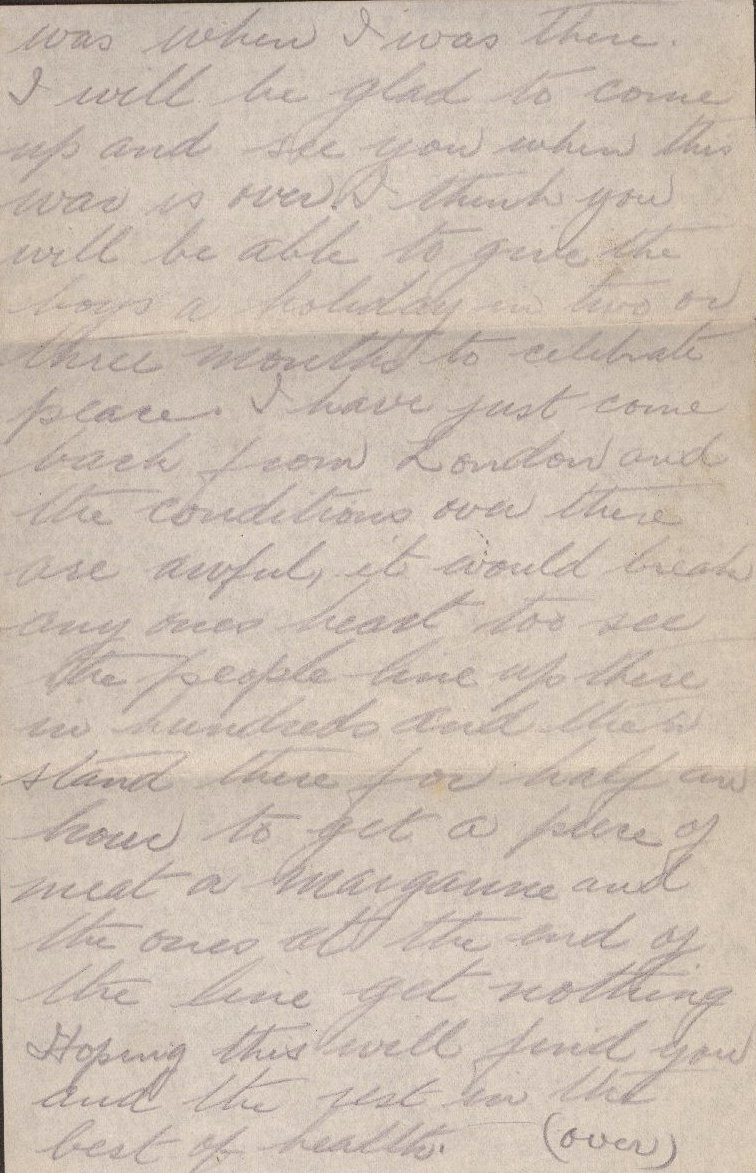 was when I was there.
I will be glad to come
up and see you when this
war is over. I think you
will be able to give the
boys a holiday in two or
three months to celebrate
peace. I have just come
back from London and
the conditions over there
are awful, it would break
any ones heart too see
the people line up there
in hundreds and then
stand there for half an
hour to get a piece of
meat or margarine and
the ones at the end of
the line get nothing
Hoping this will find you
and the rest in the
best of health. (over)